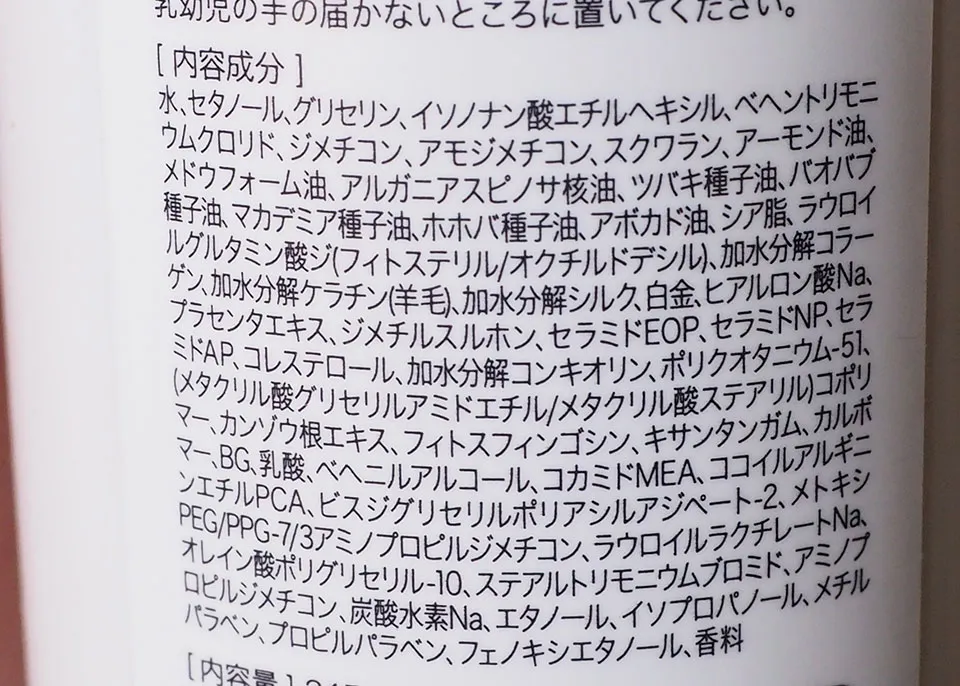 乳幼児の手の届かないところに置いてください。
[ 内容成分 ]
水、セタノール、グリセリン、イソノナン酸エチルヘキシル、ベヘントリモニ
ウムクロリド、ジメチコン、アモジメチコン、スクワラン、アーモンド油、
メドウフォーム油、アルガニアスピノサ核油、ツバキ種子油、バオバブ
種子油、マカデミア種子油、ホホバ種子油、アボカド油、シア脂、ラウロイ
ルグルタミン酸ジ(フィトステリル/オクチルドデシル)、加水分解コラー
ゲン、加水分解ケラチン(羊毛)、加水分解シルク、白金、ヒアルロン酸Na、
プラセンタエキス、ジメチルスルホン、セラミドEOP、セラミドNP、セラ
ミドAP、コレステロール、加水分解コンキオリン、ポリクオタニウム-51、
(メタクリル酸グリセリルアミドエチル/メタクリル酸ステアリル)コポリ
マー、カンゾウ根エキス、フィトスフィンゴシン、キサンタンガム、カルボ
マー、BG、乳酸、ベヘニルアルコール、コカミドMEA、ココイルアルギニ
ンエチルPCA、ビスジグリセリルポリアシルアジペート-2、メトキシ
PEG/PPG-7/3アミノプロピルジメチコン、ラウロイルラクチレートNa、
オレイン酸ポリグリセリル-10、ステアルトリモニウムブロミド、アミノプ
ロピルジメチコン、炭酸水素Na、エタノール、イソプロパノール、メチル
パラベン、プロピルパラベン、フェノキシエタノール、香料
[ 内容量